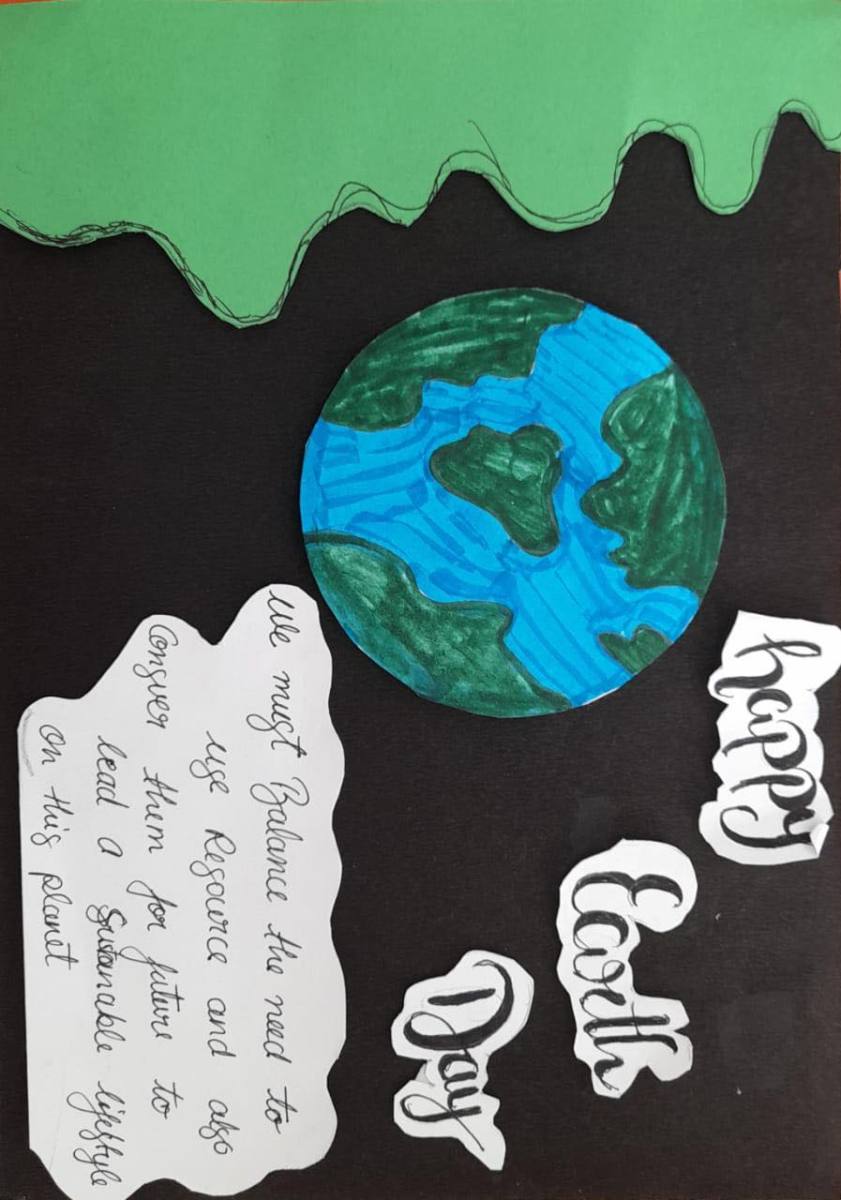 happy
Earth
Day
We must Balance the need to
use Resource and also
Conserver them for future to
lead a Sustanable lifestyle
on this planet